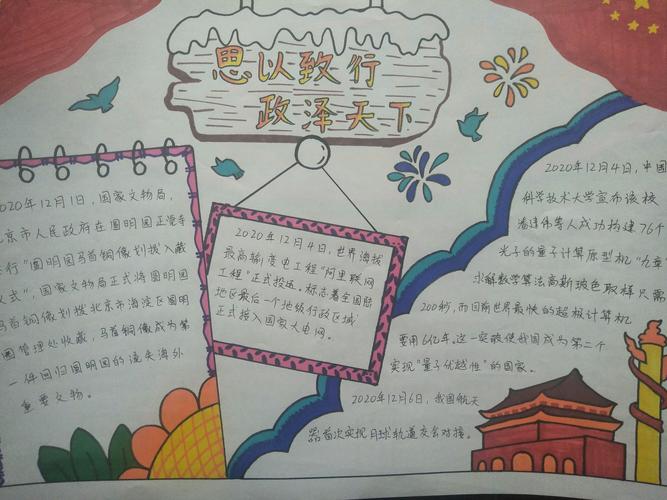 思以致行
政泽天下
2020年12月1日,国家文物局,
京市人民政府在圆明园正觉寺
行"圆明园马首铜像划拨入藏
仪式",国家文物局正式将圆明园
马首铜像划拨北京市海淀区圆明
园管理处收藏,马首铜像成为第
一件回归圆明园的流失海外
重要文物。
2020年12月4日,世界海拔
最高输变电工程"阿里联网
工程"正式投运。标志着全国陆
地区最后一个地级行政区域
正式接入国家大电网。
2020年12月4日,中国
科学技术大学宣布该校
潘建伟等人成功构建76个
光子的量子计算原型机"九章"
求解数学算法高斯玻色取样只需
200秒,而目前世界最快的超极计算机
要用6亿年。这一突破使我国成为第二个
实现"量子优越性"的国家。
2020年12月6日,我国航天
器首次实现月球轨道交会对接。